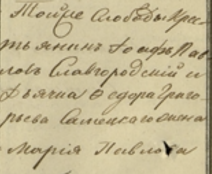 Тойже Слободы Крес-
тьянинъ Іоафъ Пав-
ловъ Славгородскій и
Дьячка Ѳедора Григо-
рьева жена
Марія Павлова